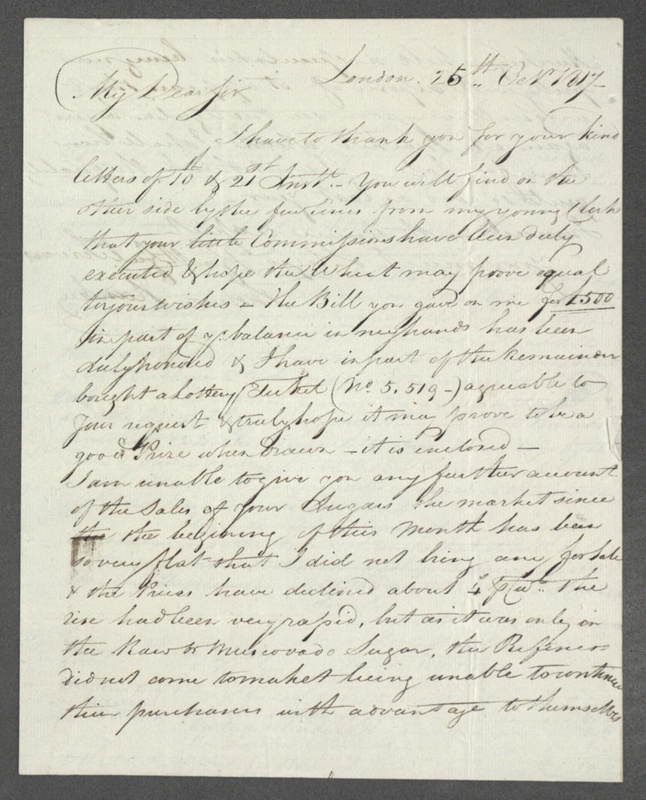 London. 25th Octr 1817-
My Dear Sir
I have to thank you for your kind
letters of 10th & 21st Inst. - You will find on the
other side by the few lines from my young Clerk
that your little Commissions have been duly
executed & hope the Wheat may prove equal
to your wishes - The Bill you gave on me for £500
in part of yr. balance in my hands has been
duly honored & I have in part of the Remainder
bought a Lottery Ticket (No 5,519-) agreeable to
your request & truly hope it may prove to be a
good Prize when drawn - it is enclosed -
I am unable to give you any further account
of the Sales of your Sugars the market since
the the beginning of this Month has been
so very flat that I did not bring any for Sale
& the Prices have declined about 4/ P Cwt. The
rise had been very rapid, but as it was only in
the Raw or Muscovado Sugar, the Refiners
did not come to market being unable to continue
their purchases with advantage to themselves